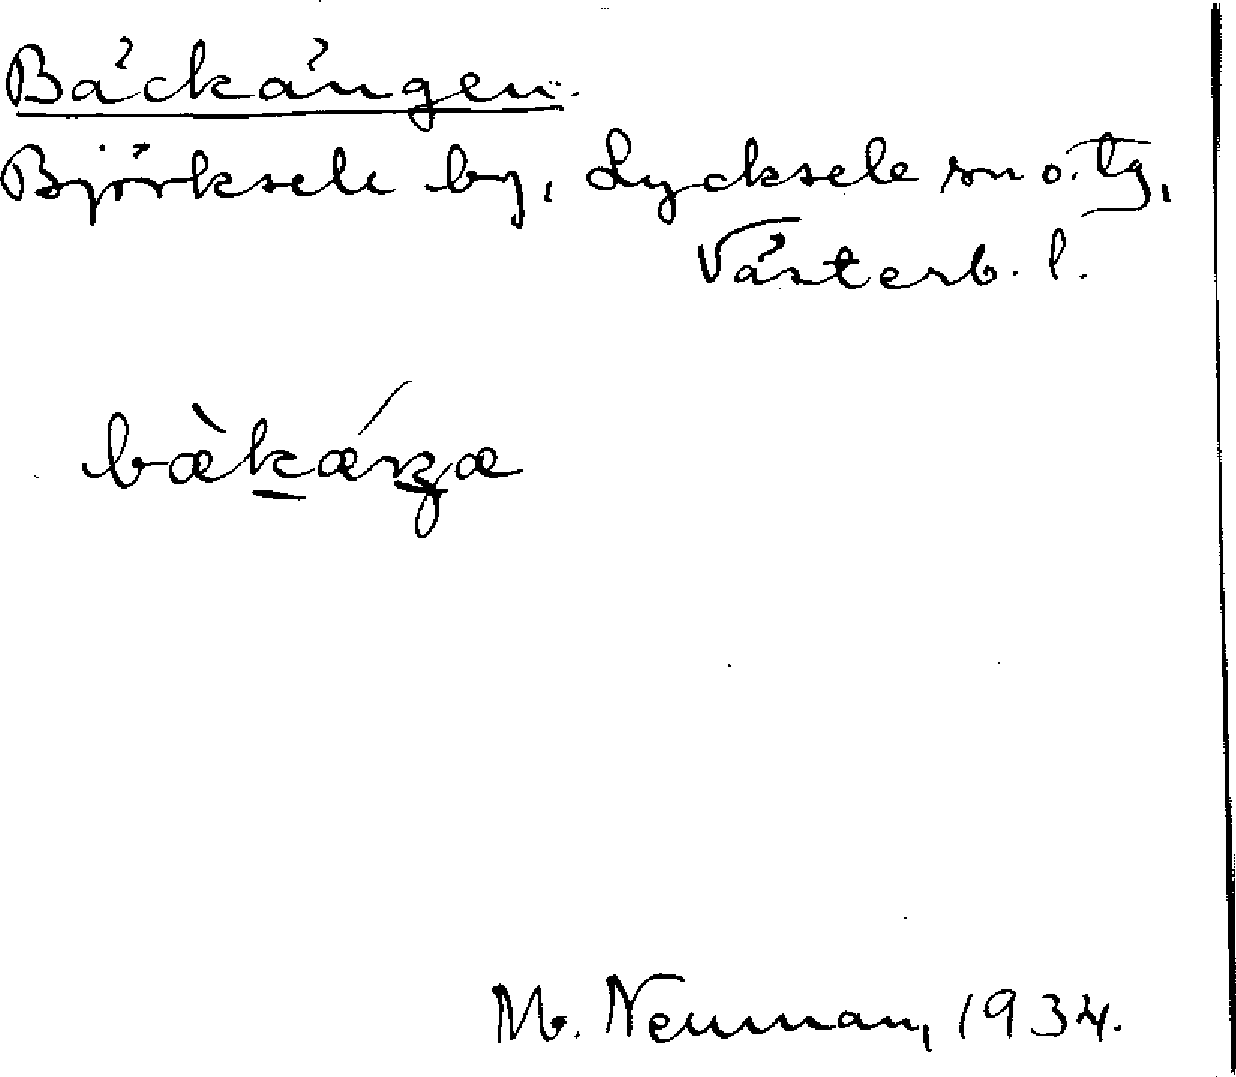 Bäckängen.
Björksele by, Lycksele sn o. tg,
Västerb. l.
M. Neuman, 1934.